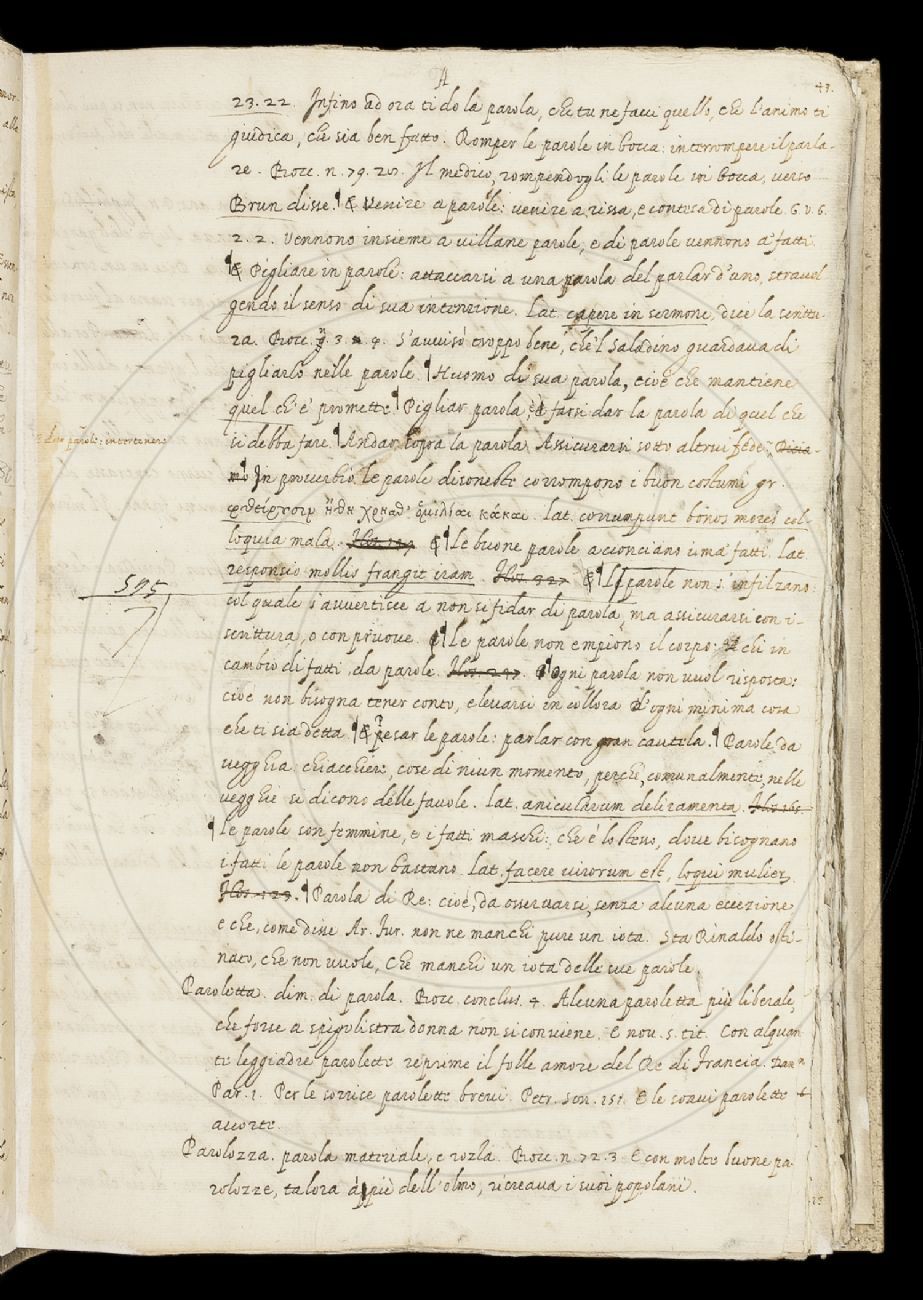 A
43.
23.22. Infino ad ora ti do la parola, che tu ne facci quello, che l'animo ti
giudica, che sia ben fatto. Romper le parole in bocca: interrompere il parla-
re. Bocc. n. 79. Il medico, rompendogli le parole in bocca, verso
Brun disse. ¶ & Venire a parole: venire a rissa, e contesa di parole. G. V. 6.
2. 2. Vennono insieme a villane parole, e di parole vennono a' fatti.
¶ & Pigliare in parole: attaccarsi a una parola del parlar d'uno, stravol
gendo il senso di sua intenzione. Lat. capere in sermone, dice la scrittu-
ra. Bocc. g. 3. s'avvisò troppo bene, che'l Saladino guardava di
pigliarlo nelle parole. ¶ Huomo di sua parola, cioè che mantiene
quel ch'e' promette. ¶ Pigliar parola, farsi dar la parola di quel che
si debba fare. ¶ Andar sopra la parola. Assicurarsi sotto altrui fede. Dicia-
dar parole: intertenere
mo In proverbio. Le parole disoneste corrompono i buon costumi gr.
φθείρουσιν ἤθη χρησθ' ὁμιλίαι κάκαι. Lat. corrumpunt bonos mores col-
loquia mala. & ¶ Le buone parole acconciano i ma' fatti. Lat.
responsio mollis frangit iram. & ¶ Le parole non s'infilzano:
595
col quale s'avvertisce a non si fidar di parola, ma assicurarsi con i-
scrittura, o con pruove. ¶ Le parole non empiono il corpo: di chi in
cambio di fatti, da parole. ¶ Ogni parola non vuol risposta:
cioè non bisogna tener conto, e levarsi in collora d'ogni minima cosa
che ti sia detta. ¶ & pesar le parole: parlar con gran cautela. ¶ Parole da
vegghia: chiacchiere, cose di niun momento, perchè, comunalmente, nelle
vegghie si dicono delle favole. Lat. anicularum deliramenta.
¶ Le parole son femmine, e i fatti maschi: che è lo stesso, dove bisognano
i fatti le parole non bastano. Lat. facere virorum est, loqui mulier.
¶ Parola di Re: cioè, da osservarsi, senza alcuna eccezione
e che, come disse Ar. Fur. non ne manchi pure un iota. Sta Rinaldo osti-
nato, che non vuole, Che manchi un iota delle sue parole.
Paroletta. dim. di parola. Bocc. conclus. 4. Alcuna paroletta più liberale,
che forse a spigolistra donna non si conviene. E nov. 5. tit. Con alquan
te leggiadre parolette reprime il folle amore del Re di Francia. Dan
Par. 1. Per le sorrise parolette brevi. Petr. Son. 151. E le soavi parolette
accorte.
Parolozza. parola materiale, e rozza. Bocc. n. 72. 3. E con molte buone pa
rolozze, talora appiè dell'olmo, ricreava i suoi popolani.